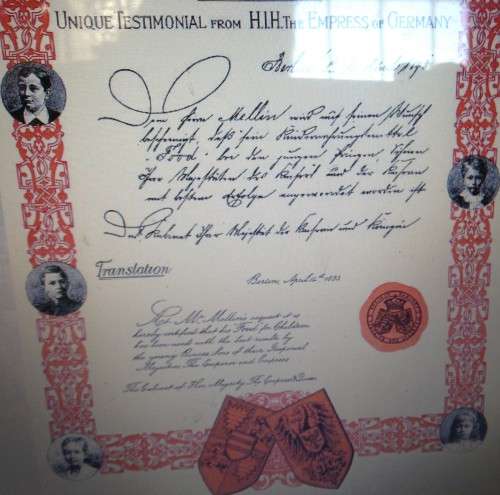 UNIQUE TESTIMONIAL FROM H.I.H. THE EMPRESS OF GERMANY
Dem Herrn Mellin wird auf seinen Wunsch
bescheinigt, daß sein Kindernahrungsmittel
"Food" bei den jungen Prinzen, Söhnen
Ihrer Majestäten des Kaisers und der Kaiserin
mit bestem Erfolge angewendet worden ist
Das Kabinet Ihrer Majestät der Kaiserin und Königin
Translation
Berlin, April 14th
At Mr Mellin's request it is
hereby certified that his Food for Children
has been used with the best results by
the young Princes Sons of their Imperial
Majesties The Emperor and Empress
The Cabinet of Her Majesty The Empress & Queen